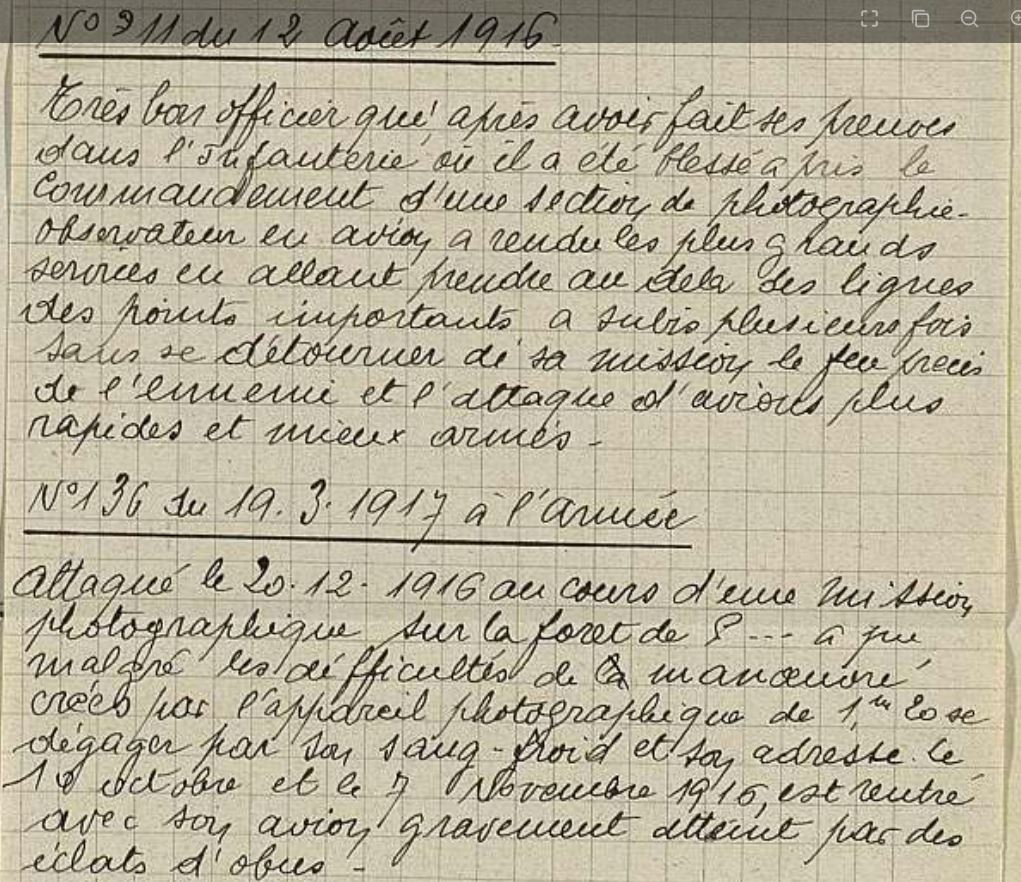 N° 311 du 12 Août 1916
Très bon officier qui après avoir fait ses preuves
dans l'Infanterie où il a été blessé a pris le
Commandement d'une section de photographie-
observateur en avion a rendu les plus grands
services en allant prendre au delà des lignes
des points importants a subis plusieurs fois
sans se détourner de sa mission le feu precis
de l'ennemi et l'attaque d'avions plus
rapides et mieux armés -
N° 136 du 19.3.1917 à l'Armée
Attaqué le 20.12.1916 au cours d'une mission
photographique sur la foret de P--- a pu
malgré les difficultés de la manœuvre
créés par l'appareil photographique de 1,m 20 se
dégager par son sang-froid et son adresse. le
octobre et le 7 Novembre 1916, est rentré
avec son avion gravement atteint par des
éclats d'obus -